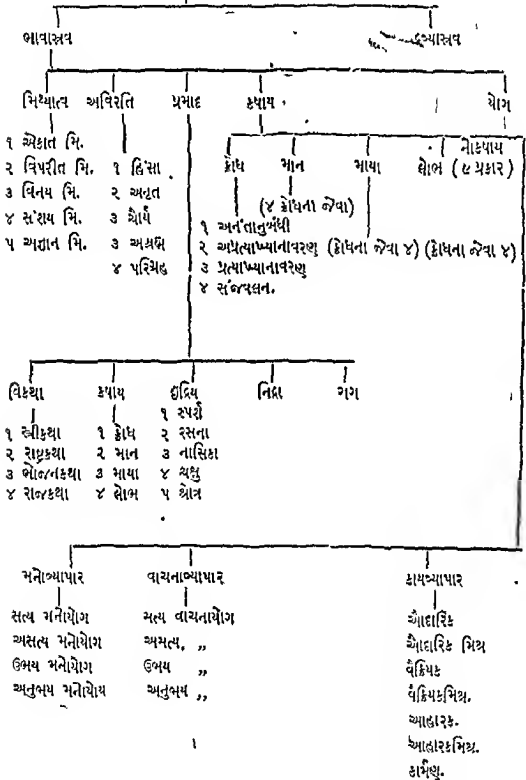 ભાવાસ્રવ
દ્રવ્યાસ્રવ
મિથ્યાત્વ અવિરતિ પ્રમાદ કષાય યોગ
૧ એકાત મિ.
૨ વિપરીત મિ.
૩ વિનય મિ.
૪ સંશય મિ.
૫ અજ્ઞાન મિ.
૧ હિંસા
૨ અનૃત
૩ ચૌર્ય
૩ અબ્રહ્મ
૪ પરિગ્રહ
ક્રોધ માન માયા લોભ નોકષાય (૯ પ્રકાર)
(૪ ક્રોધના જેવા)
૧ અનંતાનુબંધી
૨ અપ્રત્યાખ્યાનાવરણ (ક્રોધના જેવા ૪) (ક્રોધના જેવા ૪)
૩ પ્રત્યાખ્યાનાવરણ
૪ સંજવલન.
વિકથા કષાય ઇંદ્રિય નિદ્રા
૧ સ્ત્રીકથા
૨ રાષ્ટ્રકથા
૩ ભોજનકથા
૪ રાજકથા
૧ ક્રોધ
૨ માન
૩ માયા
૪ લોભ
૧ સ્પર્શ
૨ રસના
૩ નાસિકા
૪ ચક્ષુ
૫ શ્રોત્ર
મનોવ્યાપાર વાચનાવ્યાપાર કાયવ્યાપાર
સત્ય મનોયોગ
અસત્ય મનોયોગ
ઉભય મનોયોગ
અનુભય મનોયોગ
સત્ય વાચનાયોગ
અસત્ય, ,,
ઉભય ,,
અનુભય ,,
ઔદારિક
ઔદારિક મિશ્ર
વૈક્રિયક
વૈક્રિયકમિશ્ર.
આહારક.
આહારકમિશ્ર.
કાર્મણ.